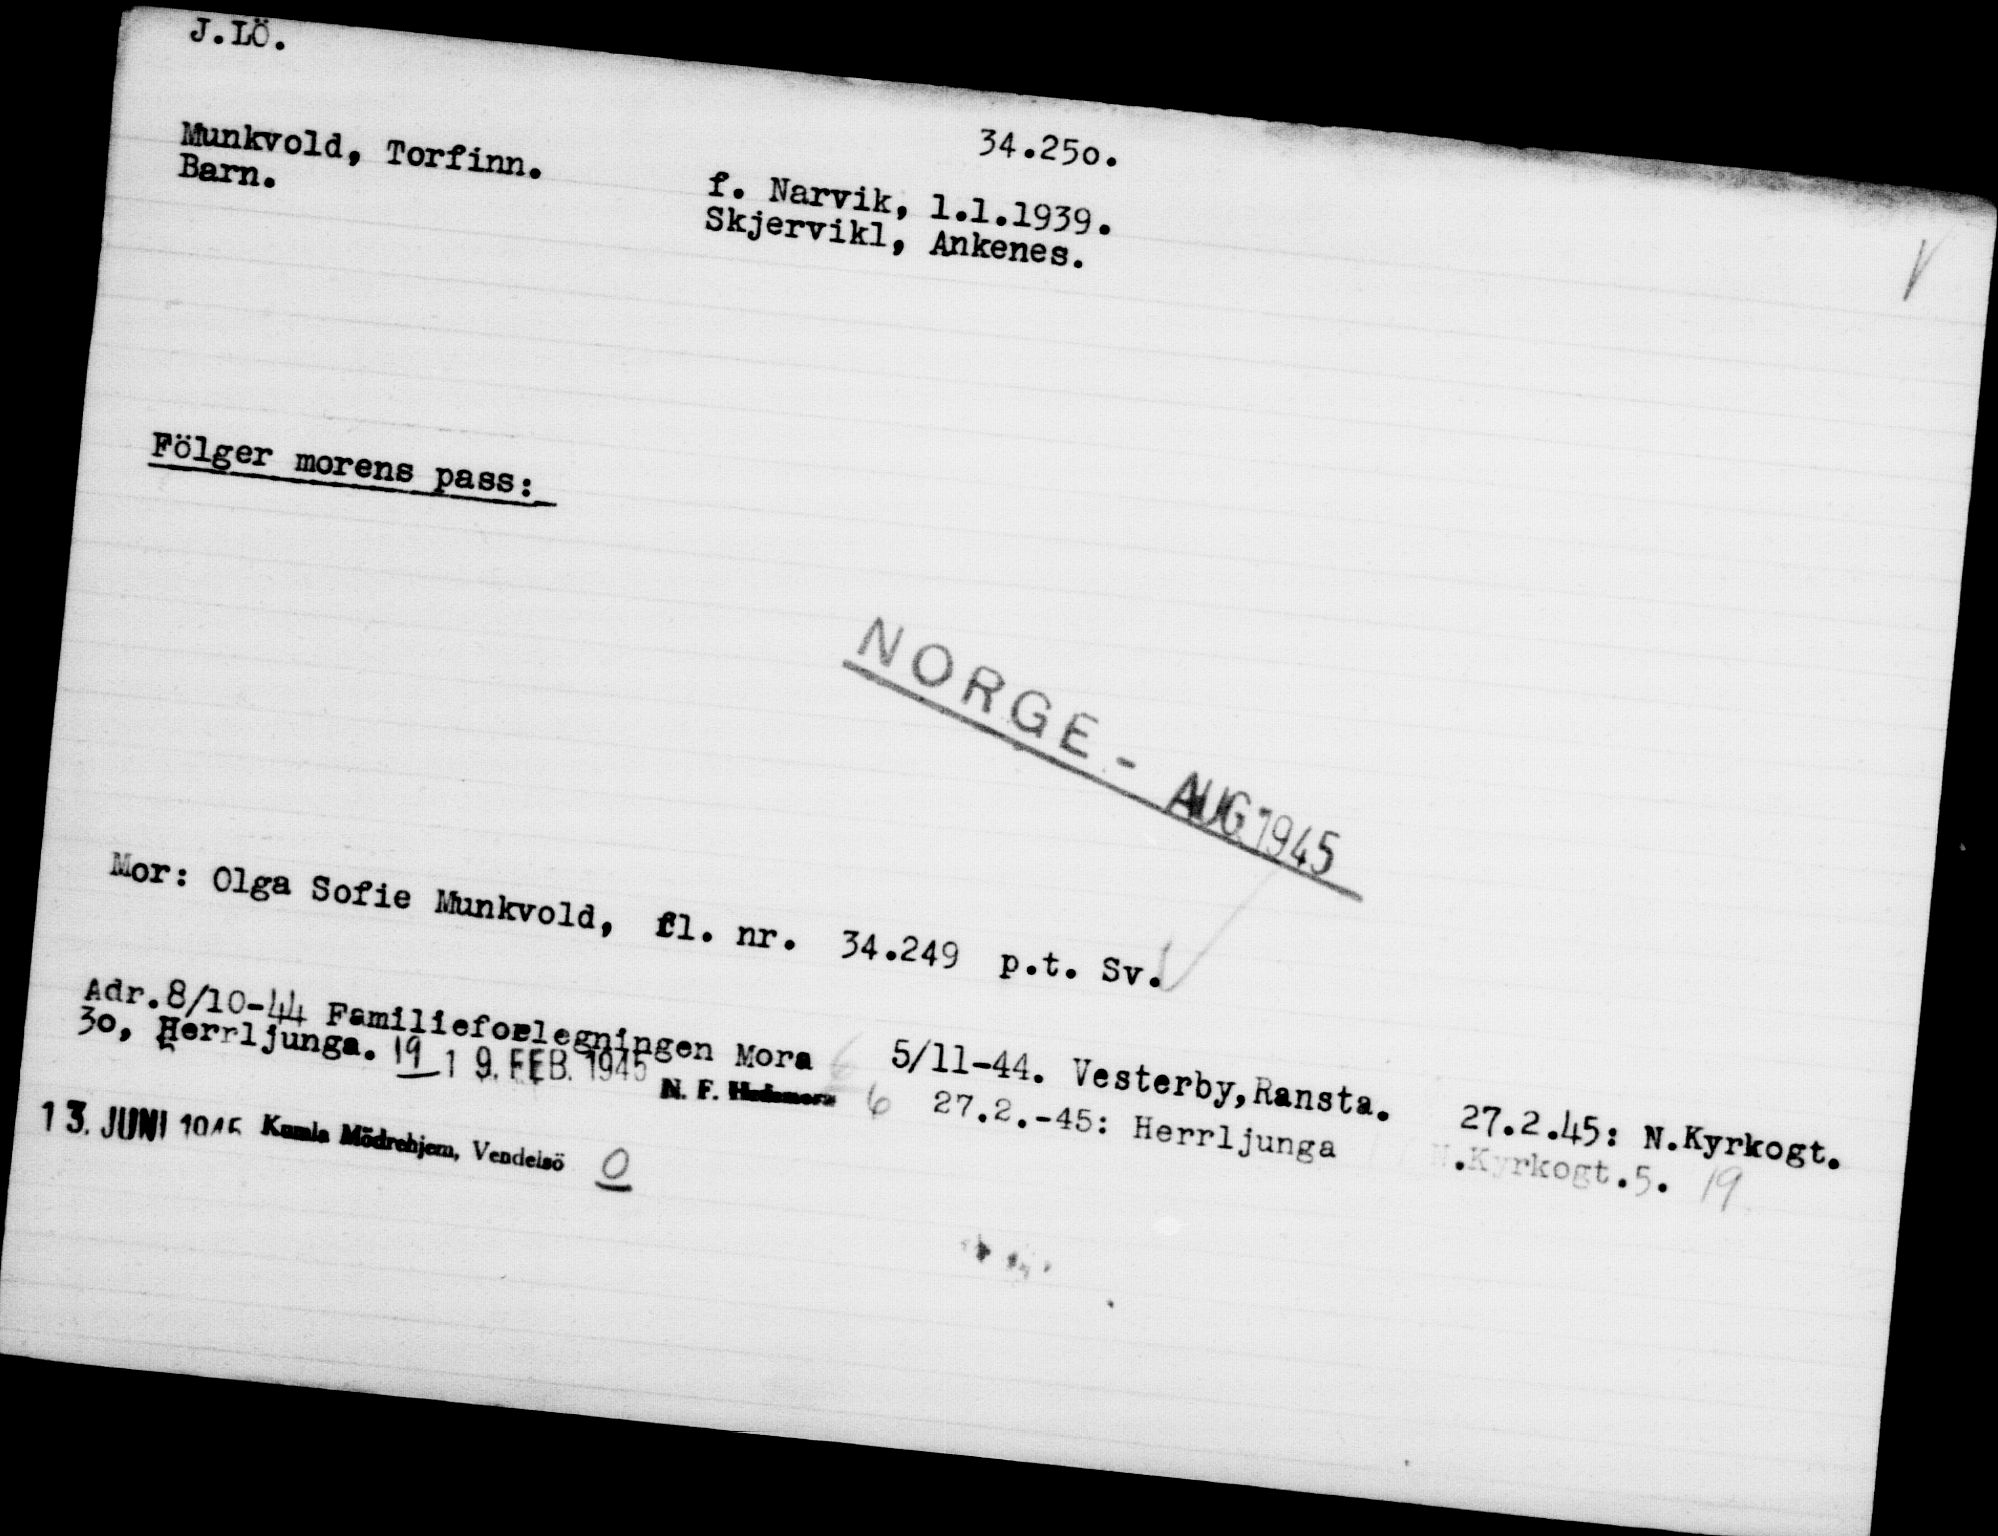 J.LÖ.
34.250.
Munkvold, Torfinn.
Barn.
f. Narvik, 1.1.1939.
Skjervikl, Ankenes.
Fölger morens pass:
NORGE - AUG 1945
Mor: Olga Sofie Munkvold, fl. nr. 34.249 p.t. Sv.
Adr. 8/10-44 Familieforlegningen Mora 5/11-44. Vesterby, Ransta. 27.2.45: N.Kyrkogt.
30, Herrljunga. 19 19. FEB. 1945 N. F. Hedemora 6 27.2.-45: Herrljunga N.Kyrkogt.5. 19
13. JUNI 1945 Kumla Mödrehjem, Vendelsö 0